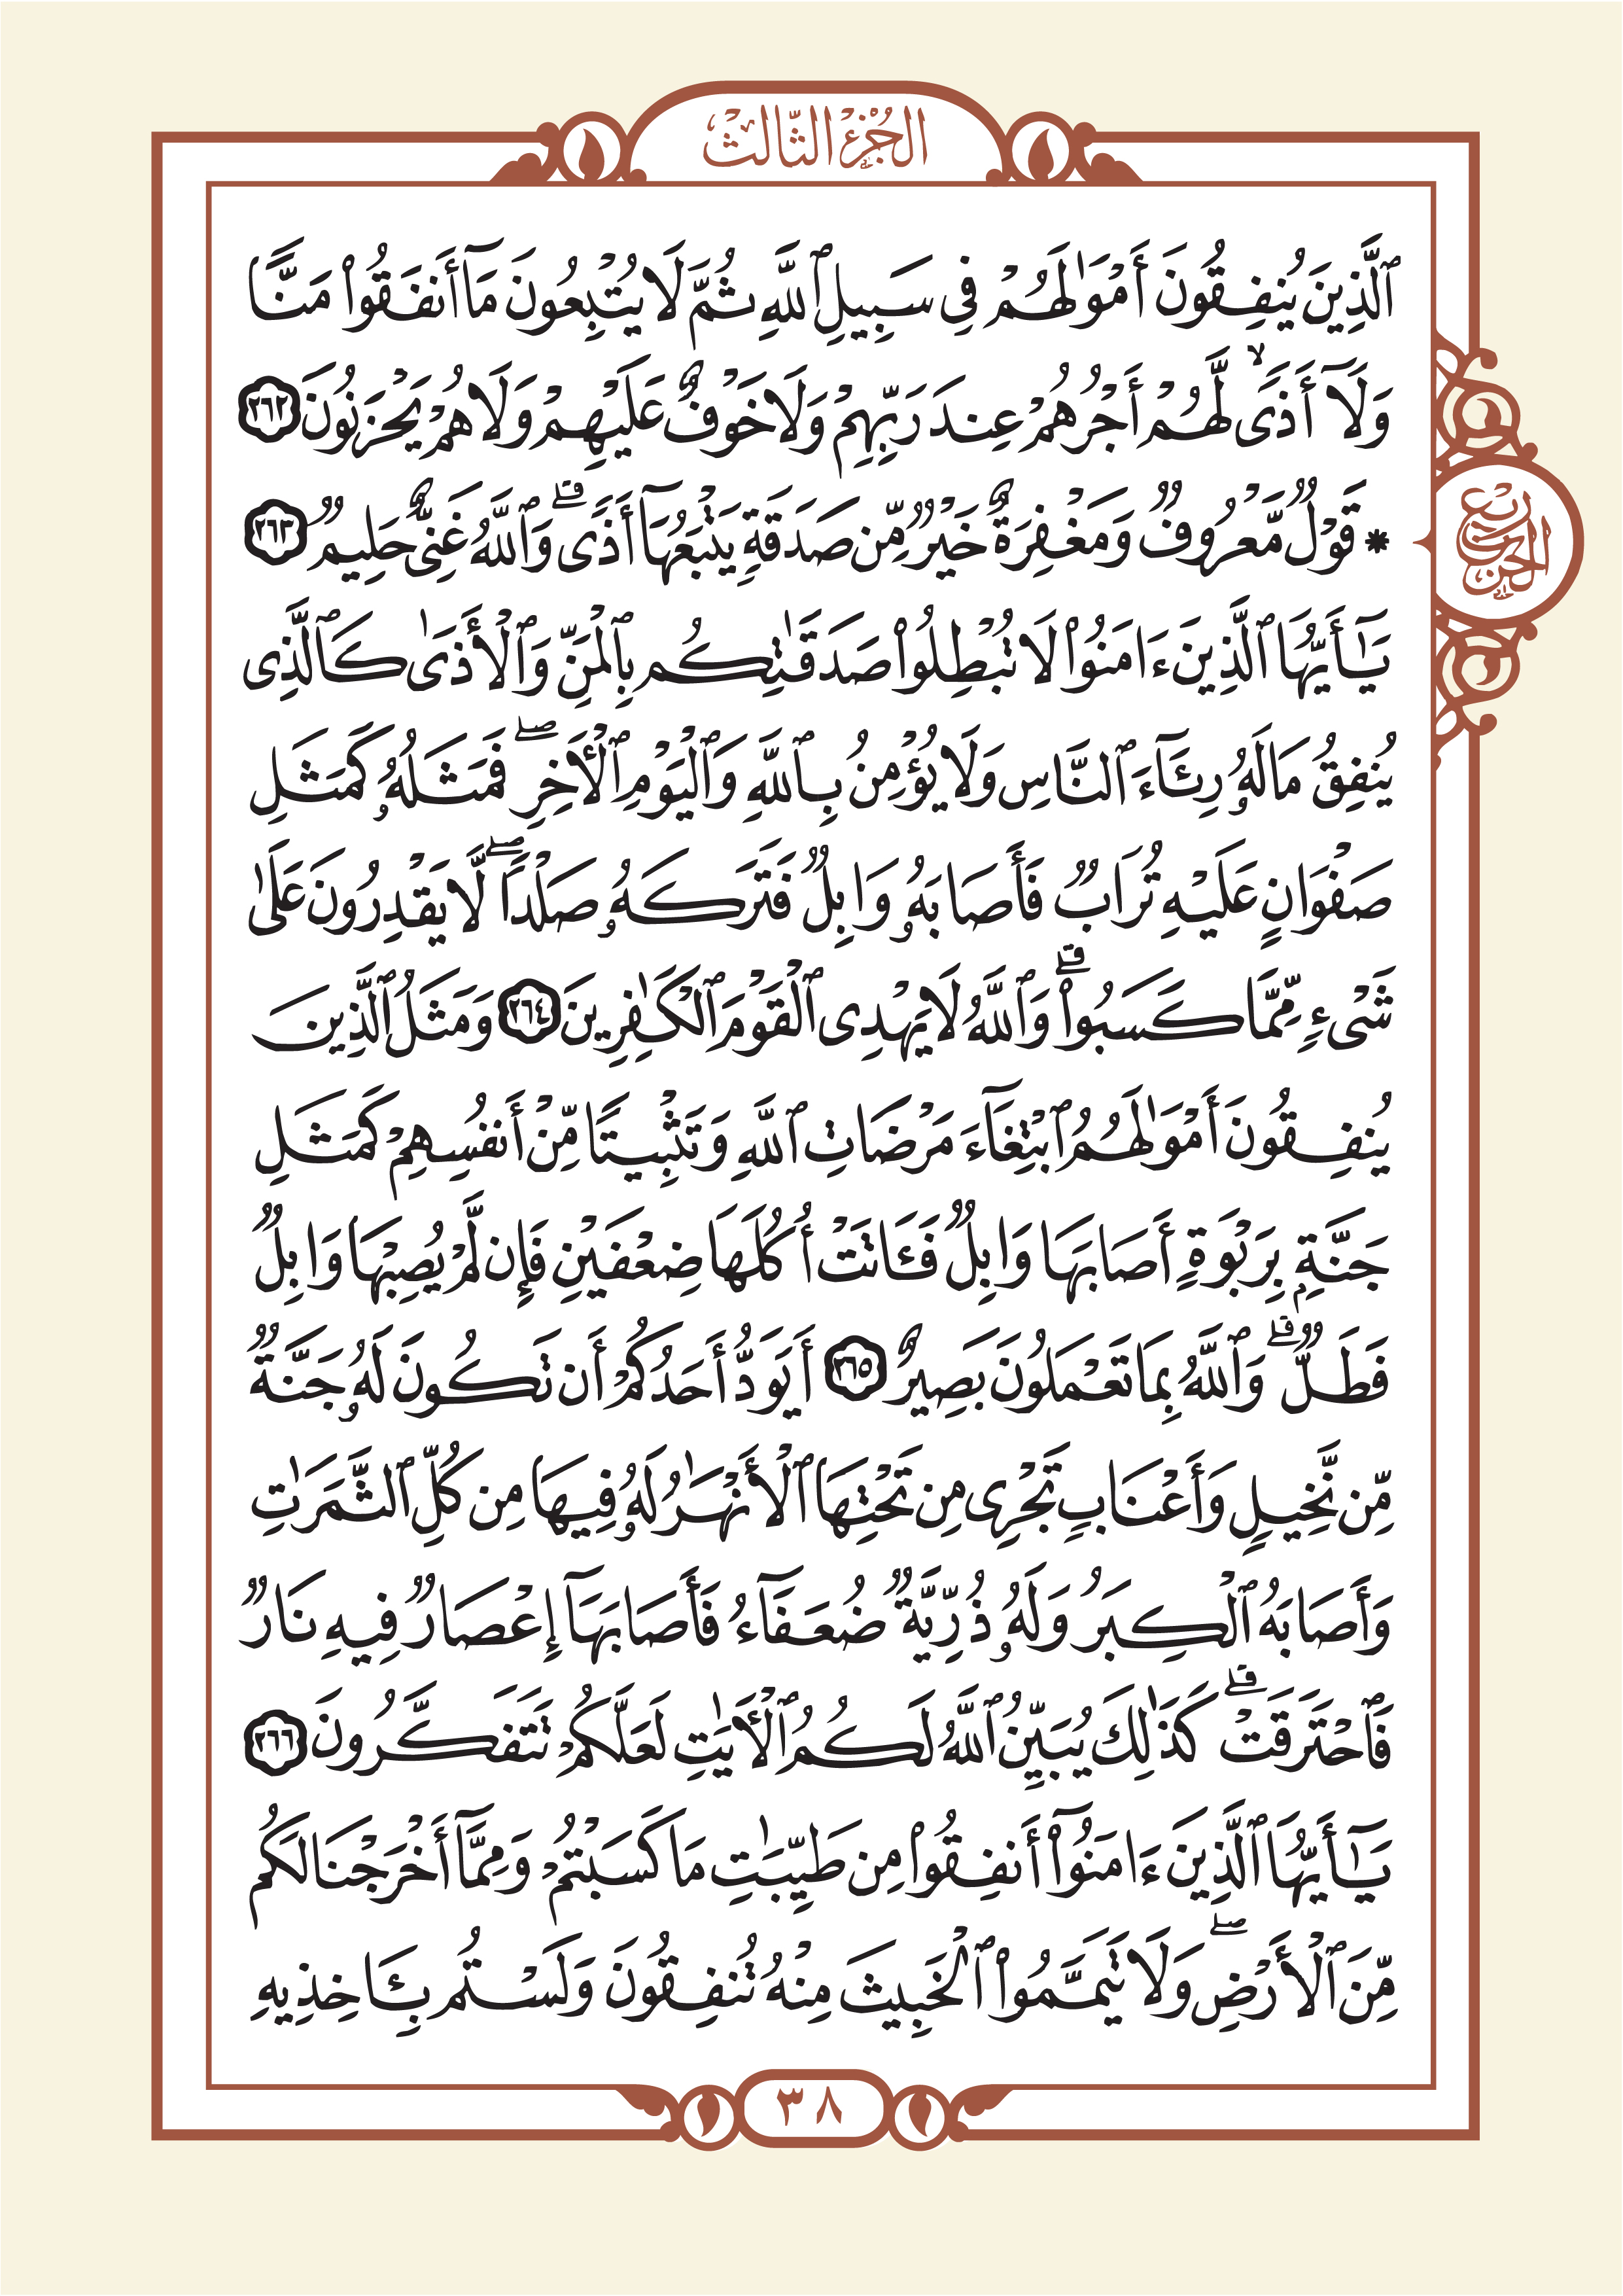 الجزء الثالث
ٱلَّذِينَ يُنفِقُونَ أَمۡوَٰلَهُمۡ فِي سَبِيلِ ٱللَّهِ ثُمَّ لَا يُتۡبِعُونَ مَآ أَنفَقُواْ مَنّٗا
وَلَآ أَذٗى لَّهُمۡ أَجۡرُهُمۡ عِندَ رَبِّهِمۡ وَلَا خَوۡفٌ عَلَيۡهِمۡ وَلَا هُمۡ يَحۡزَنُونَ ٢٦٢
* قَوۡلٞ مَّعۡرُوفٞ وَمَغۡفِرَةٌ خَيۡرٞ مِّن صَدَقَةٖ يَتۡبَعُهَآ أَذٗىۗ وَٱللَّهُ غَنِيٌّ حَلِيمٞ ٢٦٣
يَٰٓأَيُّهَا ٱلَّذِينَ ءَامَنُواْ لَا تُبۡطِلُواْ صَدَقَٰتِكُم بِٱلۡمَنِّ وَٱلۡأَذَىٰ كَٱلَّذِي
يُنفِقُ مَالَهُۥ رِئَآءَ ٱلنَّاسِ وَلَا يُؤۡمِنُ بِٱللَّهِ وَٱلۡيَوۡمِ ٱلۡأٓخِرِۖ فَمَثَلُهُۥ كَمَثَلِ
صَفۡوَانٍ عَلَيۡهِ تُرَابٞ فَأَصَابَهُۥ وَابِلٞ فَتَرَكَهُۥ صَلۡدٗاۖ لَّا يَقۡدِرُونَ عَلَىٰ
شَيۡءٖ مِّمَّا كَسَبُواْۗ وَٱللَّهُ لَا يَهۡدِي ٱلۡقَوۡمَ ٱلۡكَٰفِرِينَ ٢٦٤ وَمَثَلُ ٱلَّذِينَ
يُنفِقُونَ أَمۡوَٰلَهُمُ ٱبۡتِغَآءَ مَرۡضَاتِ ٱللَّهِ وَتَثۡبِيتٗا مِّنۡ أَنفُسِهِمۡ كَمَثَلِ
جَنَّةِۭ بِرَبۡوَةٍ أَصَابَهَا وَابِلٞ فَـَٔاتَتۡ أُكُلَهَا ضِعۡفَيۡنِ فَإِن لَّمۡ يُصِبۡهَا وَابِلٞ
فَطَلّٞۗ وَٱللَّهُ بِمَا تَعۡمَلُونَ بَصِيرٌ ٢٦٥ أَيَوَدُّ أَحَدُكُمۡ أَن تَكُونَ لَهُۥ جَنَّةٞ
مِّن نَّخِيلٖ وَأَعۡنَابٖ تَجۡرِي مِن تَحۡتِهَا ٱلۡأَنۡهَٰرُ لَهُۥ فِيهَا مِن كُلِّ ٱلثَّمَرَٰتِ
وَأَصَابَهُ ٱلۡكِبَرُ وَلَهُۥ ذُرِّيَّةٞ ضُعَفَآءُ فَأَصَابَهَآ إِعۡصَارٞ فِيهِ نَارٞ
فَٱحۡتَرَقَتۡۗ كَذَٰلِكَ يُبَيِّنُ ٱللَّهُ لَكُمُ ٱلۡأٓيَٰتِ لَعَلَّكُمۡ تَتَفَكَّرُونَ ٢٦٦
يَٰٓأَيُّهَا ٱلَّذِينَ ءَامَنُوٓاْ أَنفِقُواْ مِن طَيِّبَٰتِ مَا كَسَبۡتُمۡ وَمِمَّآ أَخۡرَجۡنَا لَكُم
مِّنَ ٱلۡأَرۡضِۖ وَلَا تَيَمَّمُواْ ٱلۡخَبِيثَ مِنۡهُ تُنفِقُونَ وَلَسۡتُم بِـَٔاخِذِيهِ
ربع الحزب
٣٨